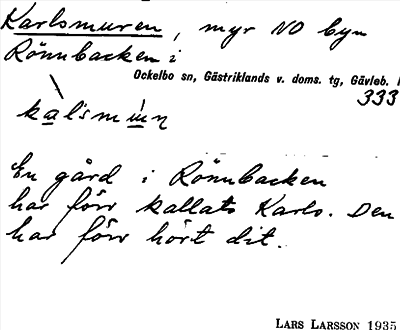 Karlsmuren, myr NO byn
Rönnbacken i
Ockelbo sn, Gästriklands v. doms. tg, Gävleb. l
333
kalsmun
En gård i Rönnbacken
har förr kallats Karls. Den
har förr hört dit.
LARS LARSSON 1935